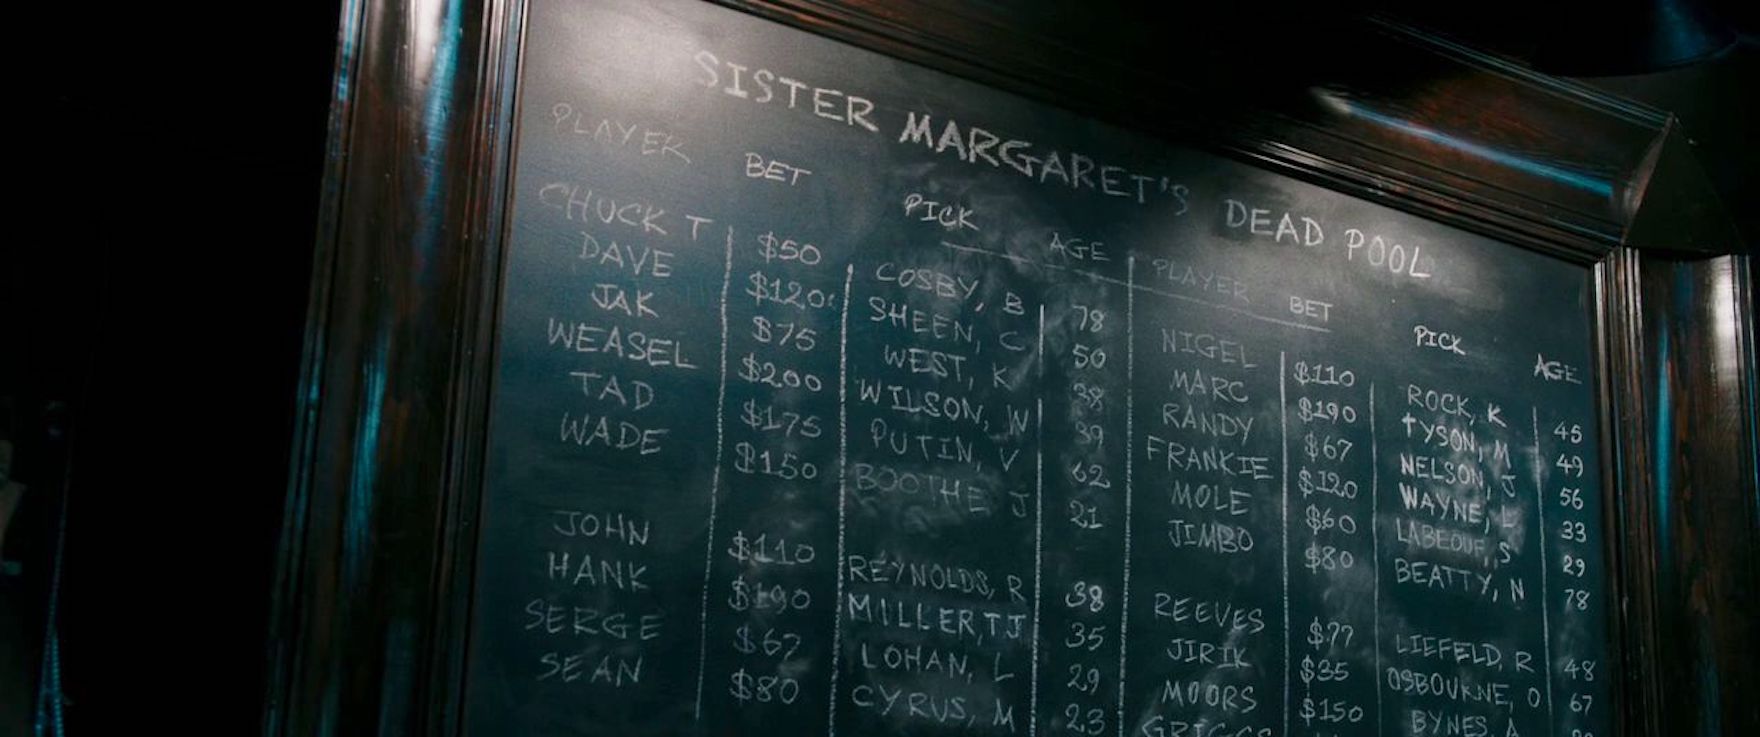 SISTER MARGARET'S DEAD POOL
PLAYER BET PICK AGE PLAYER BET PICK AGE
CHUCK T $50 COSBY, B 78 NIGEL $110 ROCK, K 45
DAVE $120 SHEEN, C 50 MARC $190 TYSON, M 49
JAK $75 WEST, K 38 RANDY $67 NELSON, J 56
WEASEL $200 WILSON, W 39 FRANKIE $120 WAYNE, L 33
TAD $175 PUTIN, V 62 MOLE $60 LABEOUF, S 29
WADE $150 BOOTHE J 21 JIMBO $80 BEATTY, N 78
JOHN $110 REYNOLDS, R 38 REEVES $77 LIEFELD, R 48
HANK $190 MILLER, TJ 35 JIRIK $35 OSBOURNE, O 67
SERGE $67 LOHAN, L 29 MOORS $150 BYNES, A
SEAN $80 CYRUS, M 23 GRIGGS